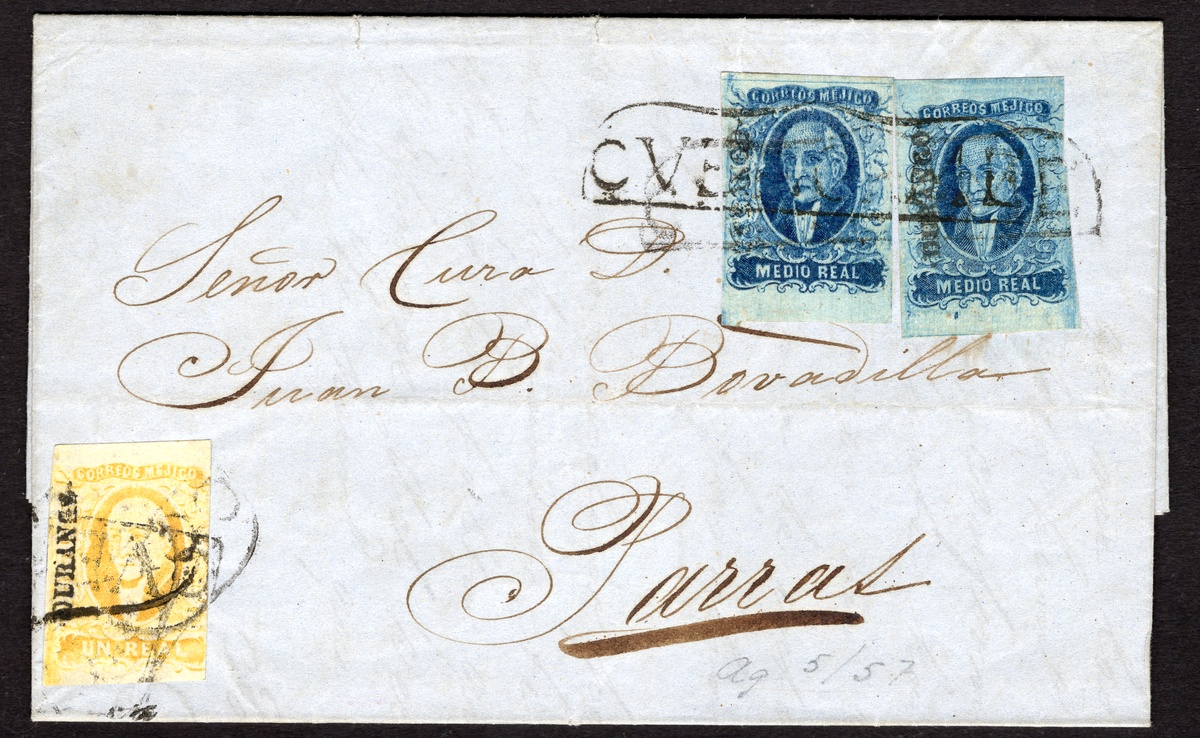 CORREOS MEJICO
MEDIO REAL
CORREOS MEJICO
DURANGO
MEDIO REAL
Señor Cura D.
Juan B. Bovadilla
Parras
Ag 5/57
CORREOS MEJICO
DURANGO
UN REAL